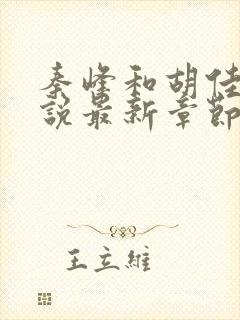 秦峰和胡佳
說最新章節
王立維